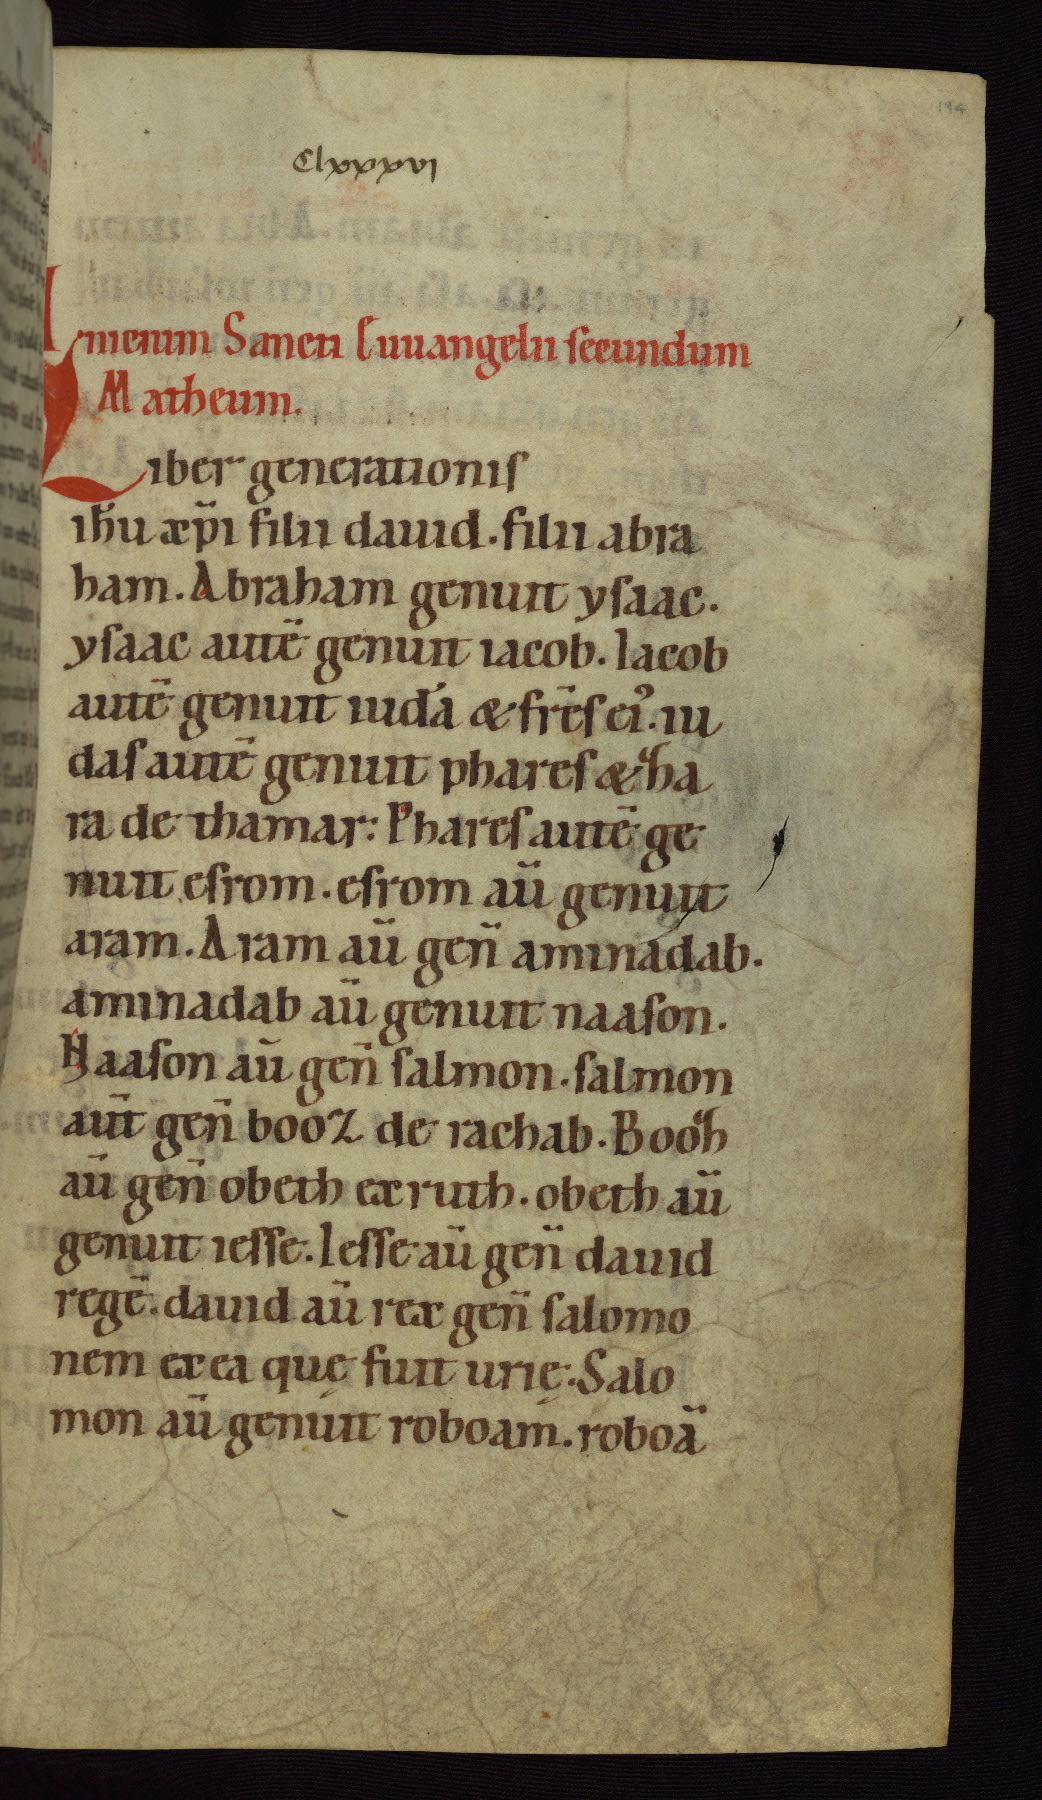 194
Clxxxvi
Inicium Sancti Euuangelii secundum
Matheum.
Liber generationis
ihu xpi filii dauid. filii abra
ham. Abraham genuit ysaac.
ysaac autē genuit iacob. Iacob
autē genuit iudā & frēs ei᾽. iu
das autē genuit phares &
ra de thamar: Phares autē ge
nuit esrom. esrom aū genuit
aram. Aram aū gen̄ aminadab.
aminadab aū genuit naason.
Naason aū gen̄ salmon. salmon
aūt gen̄ booz de rachab. Booh
aū gen̄ obeth ex ruth. obeth aū
genuit iesse. Iesse aū gen̄ dauid
regē. dauid aū rex gen̄ salomo
nem ex ea quę fuit urię. Salo
mon aū genuit roboam. roboā